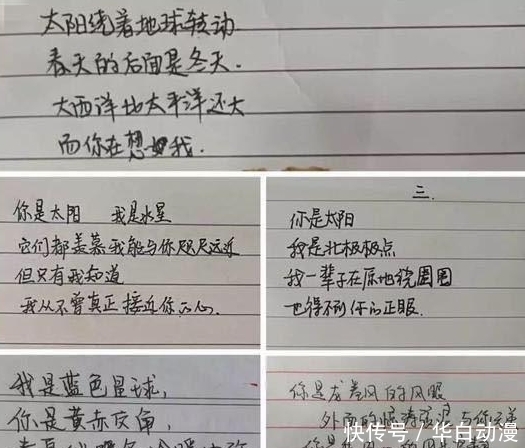 太阳绕着地球转动
春天的后面是冬天.
大西洋比太平洋还大
而你在想我.
你是太阳 我是水星
它们都羡慕我能与你咫尺远近
但只有我知道
我从不曾真正接近你的心.
三.
你是太阳
我是北极极点
我一辈子在原地绕圈圈
也得不到你的正眼.
我是蓝色星球,
你是黄赤交角,
你是龙卷风的风眼
外面的
快传号 / 华白动漫